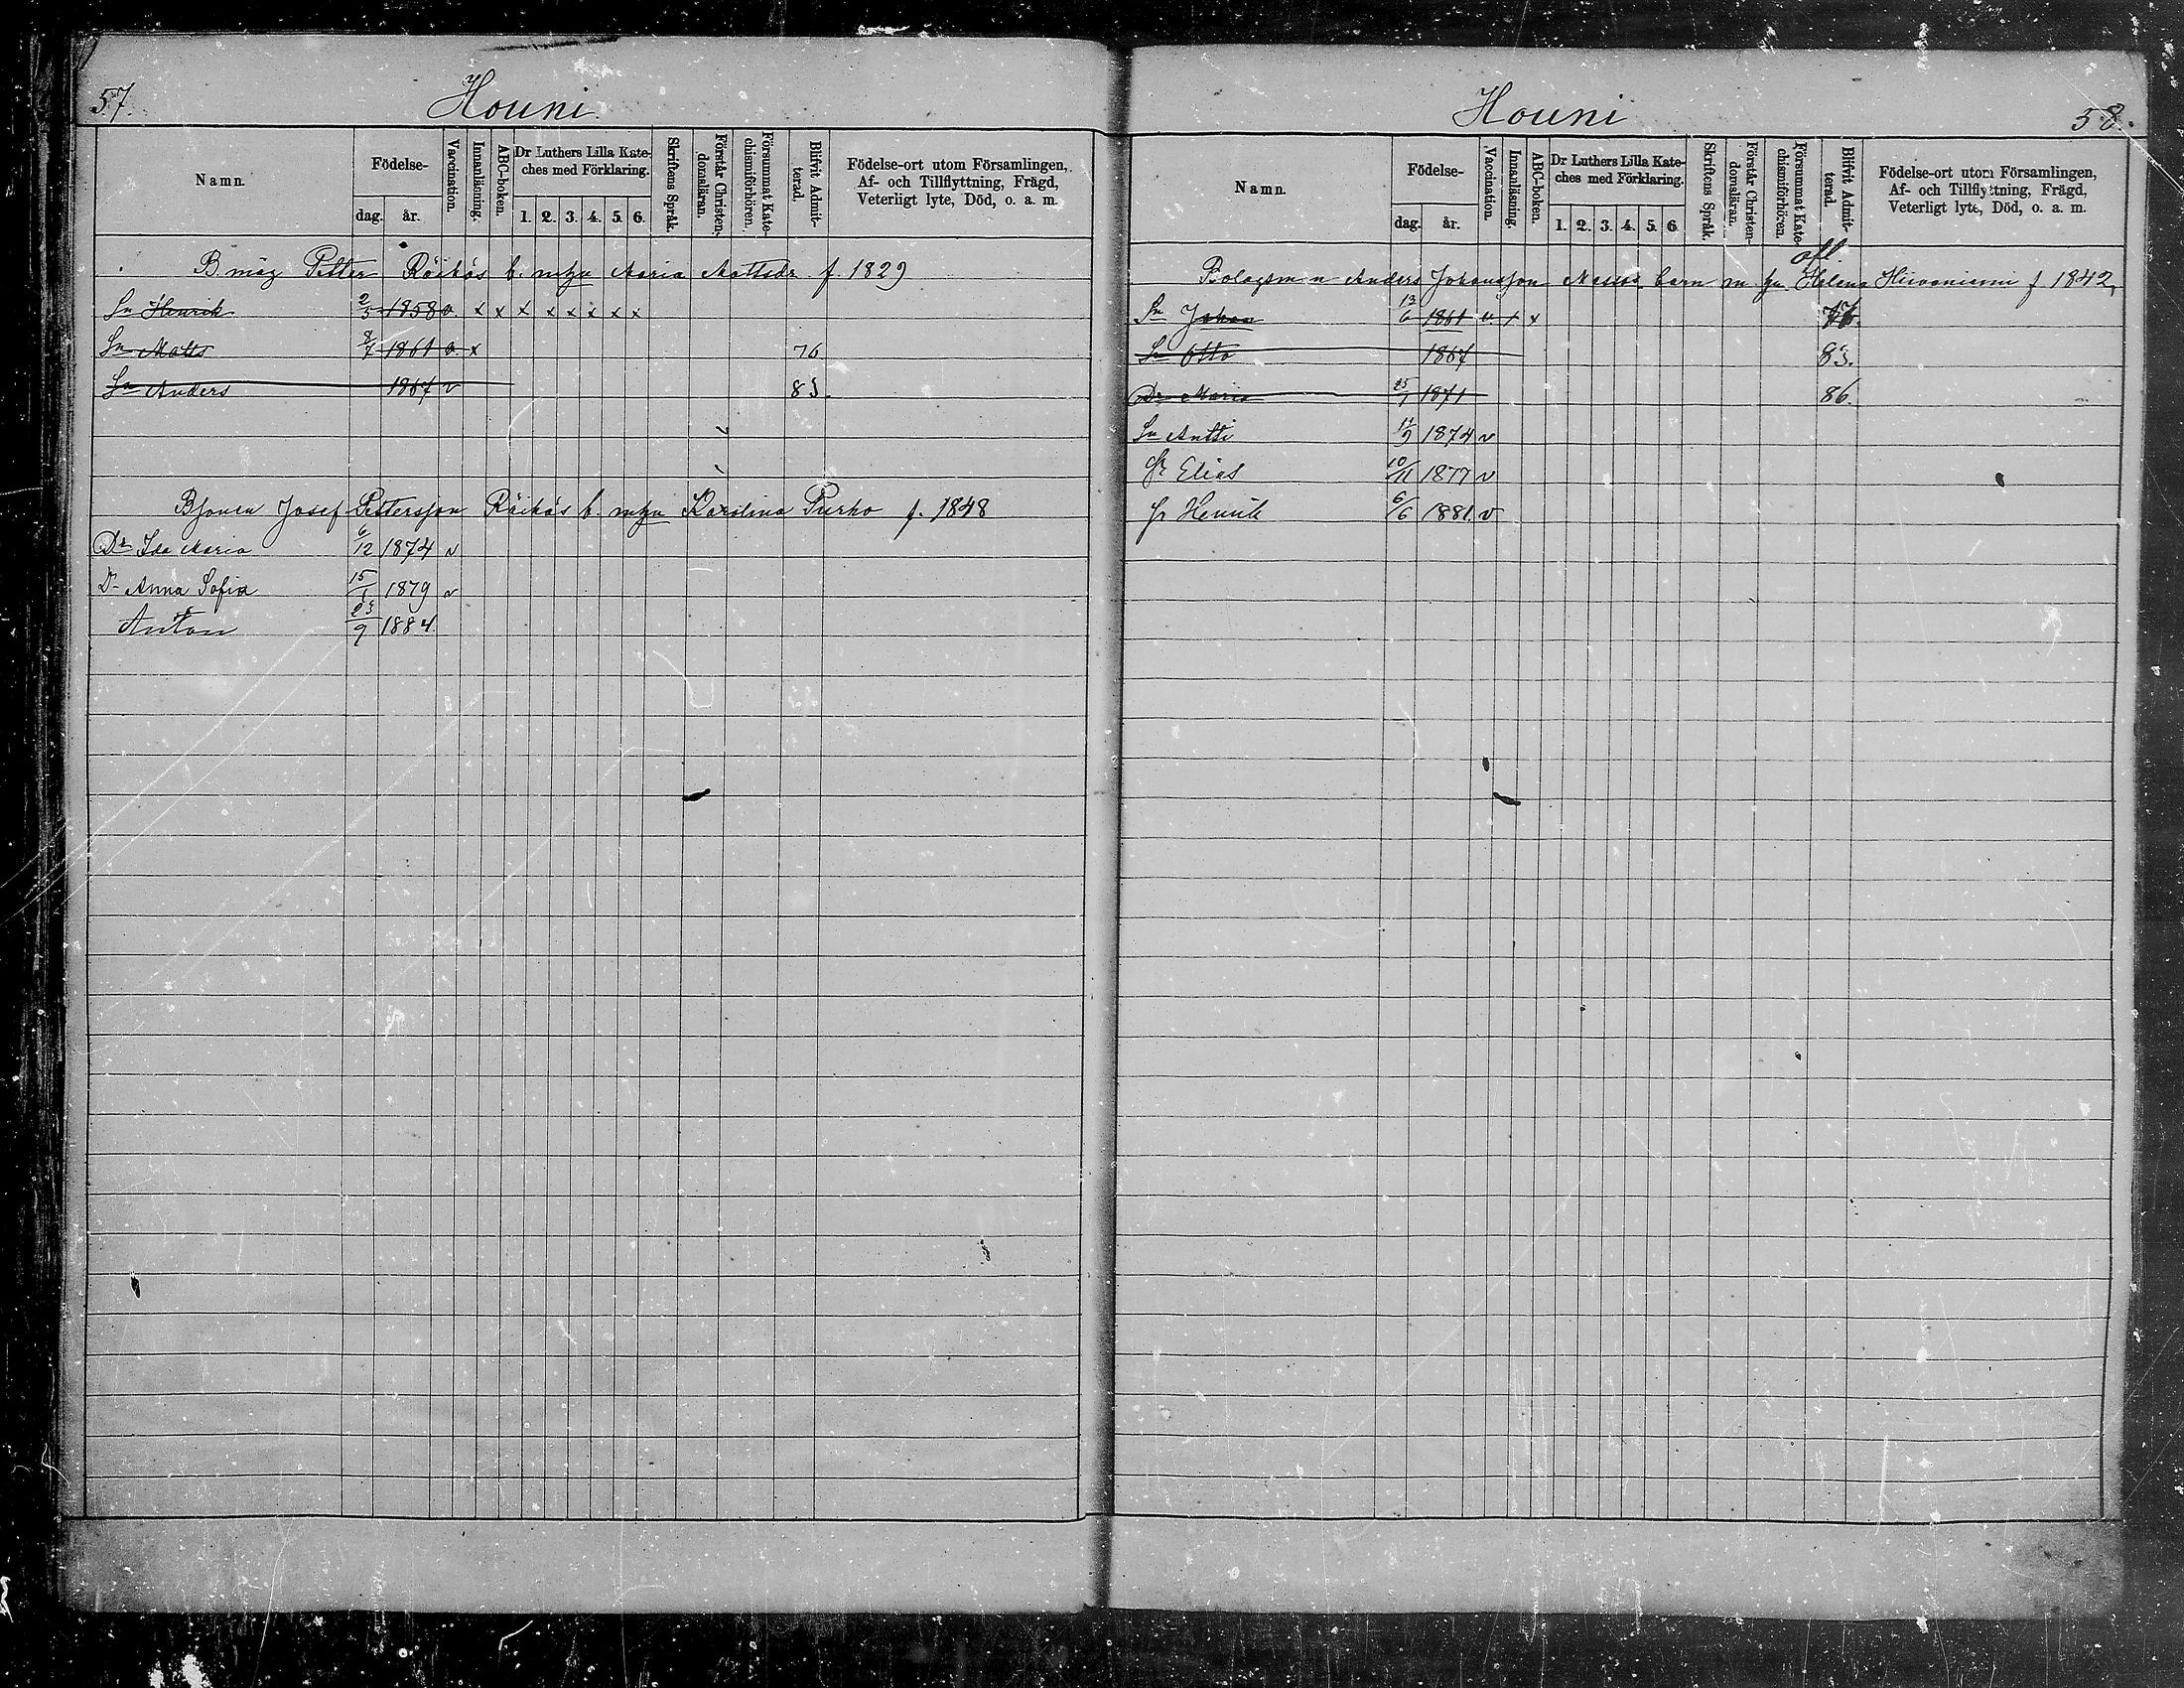 57.
Houni
Namn.
Födelse-
dag. år.
Vaccination.
Innanläsning.
ABC-boken.
Dr Luthers Lilla Kate-
ches med Förklaring.
1. 2. 3. 4. 5. 6.
Skriftens Språk.
Förstår Christen-
domsläran.
Försummat Kate-
chismiförhören.
Blifvit Admit-
terad.
Födelse-ort utom Församlingen,
Af- och Tillflyttning, Frägd,
Veterligt lyte, Död, o. a. m.
B måg Petter Röikös b. m hu Maria Mattsdr f 1829
Sn Henrik 2/3 1858 v. x x x x x x x x
Sn Matts 8/7 1861 v. x 76
Sn Anders 1867 v 83
Bsonen Josef Pettersson Röikös b. m hu Karolina Purho f. 1848
Dr Ida Maria 6/12 1874 v
Dr Anna Sofia 15/1 1879 v
Anton 23/9 1884
Houni
58.
Namn.
Födelse-
dag. år.
Vaccination.
Innanläsning.
ABC-boken.
Dr Luthers Lilla Kate-
ches med Förklaring.
1. 2. 3. 4. 5. 6
Skriftens Språk.
Förstår Christen-
domsläran.
Försummat Kate-
chismiförhören.
Blifvit Admit-
terad.
Födelse-ort utom Församlingen,
Af- och Tillflyttning, Frägd,
Veterligt lyte, Död, o. a. m.
afl.
Bolagsm n Anders Johansson barn m hu Helena f 1842
Sn Johan 13/6 1861 v. x x
Sn Otto 1867 83.
Dr Maria 25/1 1871 86.
Sn Antti 1874 v
Sn Elias 10/11 1877 v
Sn Henrik 6/6 1881 v